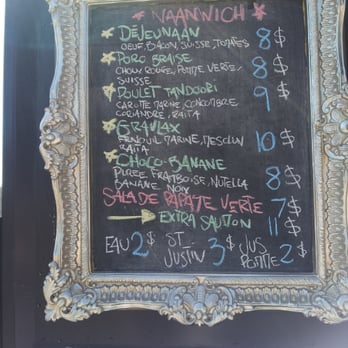 * NAANWICH *
* DÉJEUNAAN 8$
OEUF, BACON, SUISSE, TOMATES
* PORC BRAISÉ 8$
CHOUX ROUGE, POMME VERTE,
SUISSE
* POULET TANDOORI 9$
CAROTTE MARINÉ, CONCOMBRE
CORIANDRE, RAITA
* GRAVLAX 10$
FENOUIL MARINÉ, MESCLUN
RAITA
* CHOCO-BANANE 8$
PURÉE FRAMBOISE, NUTELLA
BANANE, NOIX
SALADE PAPAYE VERTE 7$
EXTRA SAUMON 11$
EAU 2$ ST-JUSTIN 3$ JUS POMME 2$